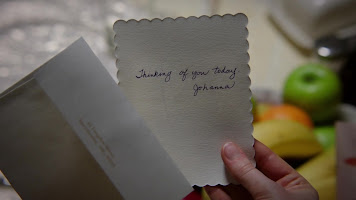 Thinking of you today,
Johanna